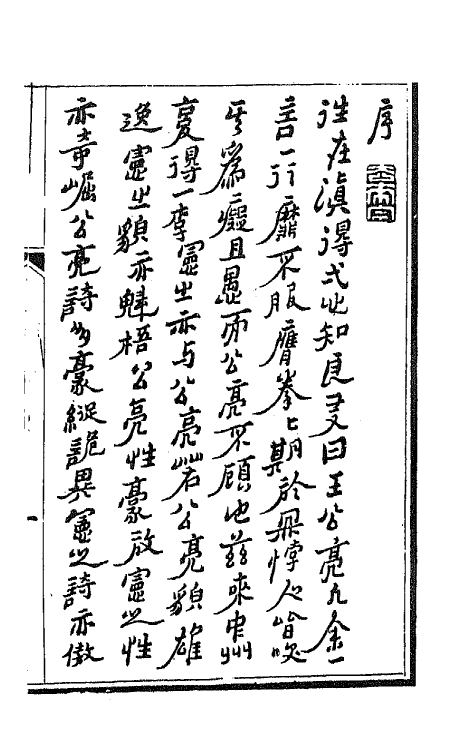 序
往在滇得弍此知良友曰王公亮凡余一
言一行靡不服膺拳ヒ期於罔悖人皆咲
其為癡且愚而公亮不顧也茲來中州
夏得一李憲之亦与公亮若公亮貌雄
逸憲之貌亦魁梧公亮性豪放憲之性
亦奇崛公亮詩多豪縱詭異憲之詩亦傲